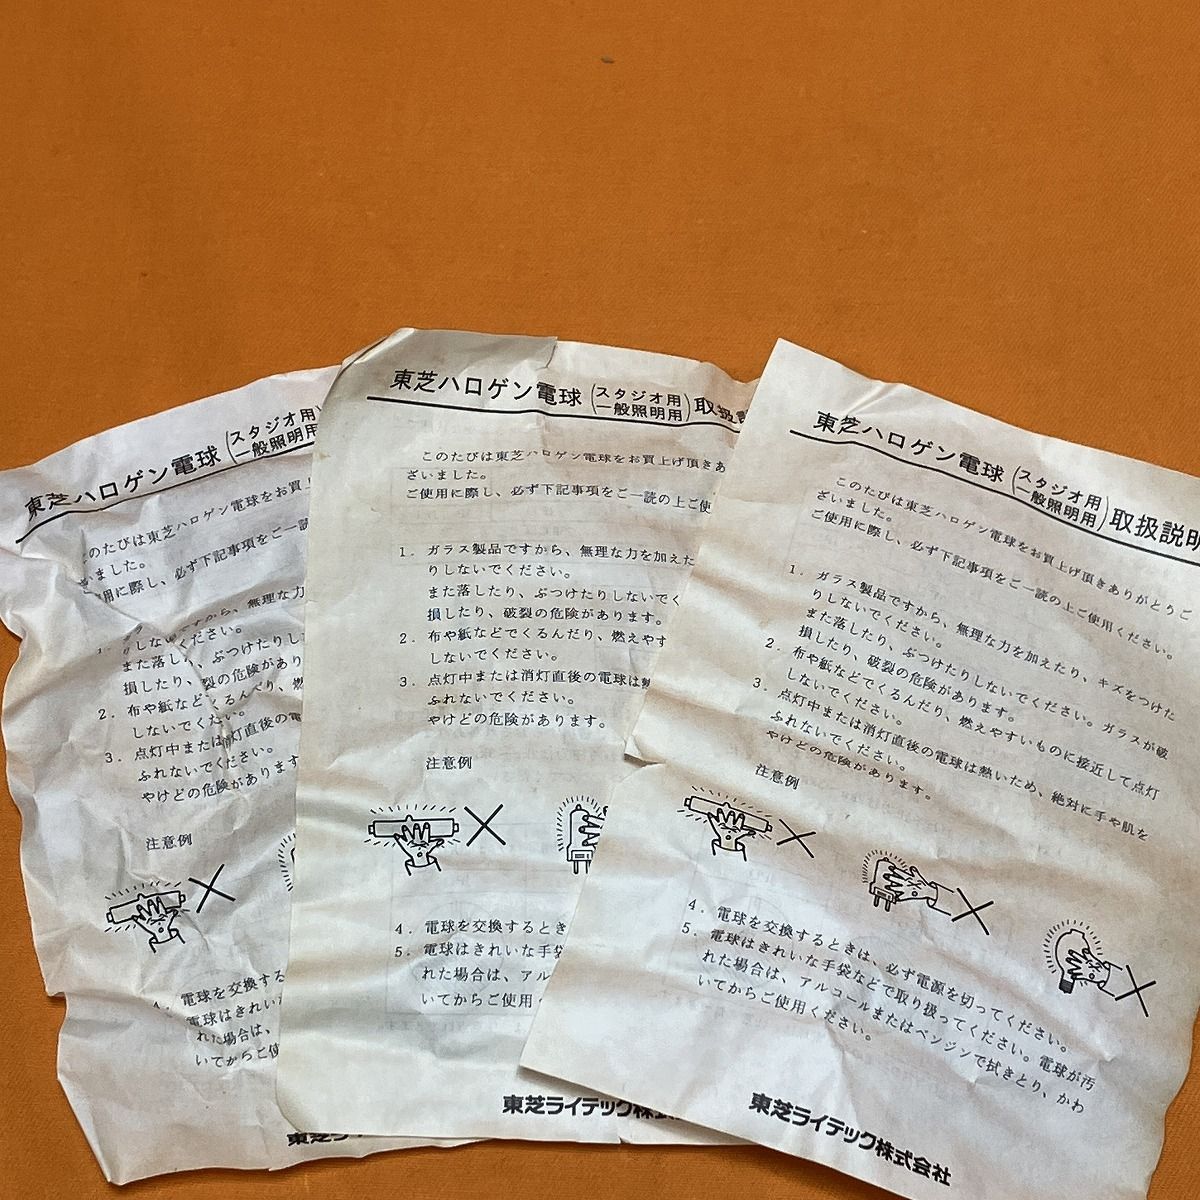 東芝ハロゲン電球(スタジオ用
一般照明用
このたびは東芝ハロゲン電球をお買上
ざいました。
用に際し、必ず下記事項をご一読
から、無理な力
りしないでください。
また落し り、ぶつけたりし
損したり、 裂の危険があり
2. 布や紙などでくるんだり、燃
しないでくだ い。
3. 点灯中または 灯直後の電
ふれないでください。
やけどの危険があります
注意例
4. 電球を交換する
電球はきれいな
れた場合は、
いてからご使
東芝ライ
東芝ハロゲン電球(スタジオ用
一般照明用)取扱説
このたびは東芝ハロゲン電球をお買上げ頂きあ
ざいました。
ご使用に際し、必ず下記事項をご一読の上ご使
1. ガラス製品ですから、無理な力を加えた
りしないでください。
また落したり、ぶつけたりしないでく
損したり、破裂の危険があります。
2. 布や紙などでくるんだり、燃えやす
しないでください。
3. 点灯中または消灯直後の電球は熱
ふれないでください。
やけどの危険があります。
注意例
4. 電球を交換するとき
5. 電球はきれいな手袋
れた場合は、アル
いてからご使用く
東芝ライテック株式
東芝ハロゲン電球(スタジオ用
一般照明用)取扱説明
このたびは東芝ハロゲン電球をお買上げ頂きありがとうご
ざいました。
ご使用に際し、必ず下記事項をご一読の上ご使用ください。
1. ガラス製品ですから、無理な力を加えたり、キズをつけた
りしないでください。
また落したり、ぶつけたりしないでください。ガラスが破
損したり、破裂の危険があります。
2. 布や紙などでくるんだり、燃えやすいものに接近して点灯
しないでください。
3. 点灯中または消灯直後の電球は熱いため、絶対に手や肌を
ふれないでください。
やけどの危険があります。
注意例
4. 電球を交換するときは、必ず電源を切ってください。
5. 電球はきれいな手袋などで取り扱ってください。電球が汚
れた場合は、アルコールまたはベンジンで拭きとり、かわ
いてからご使用ください。
東芝ライテック株式会社